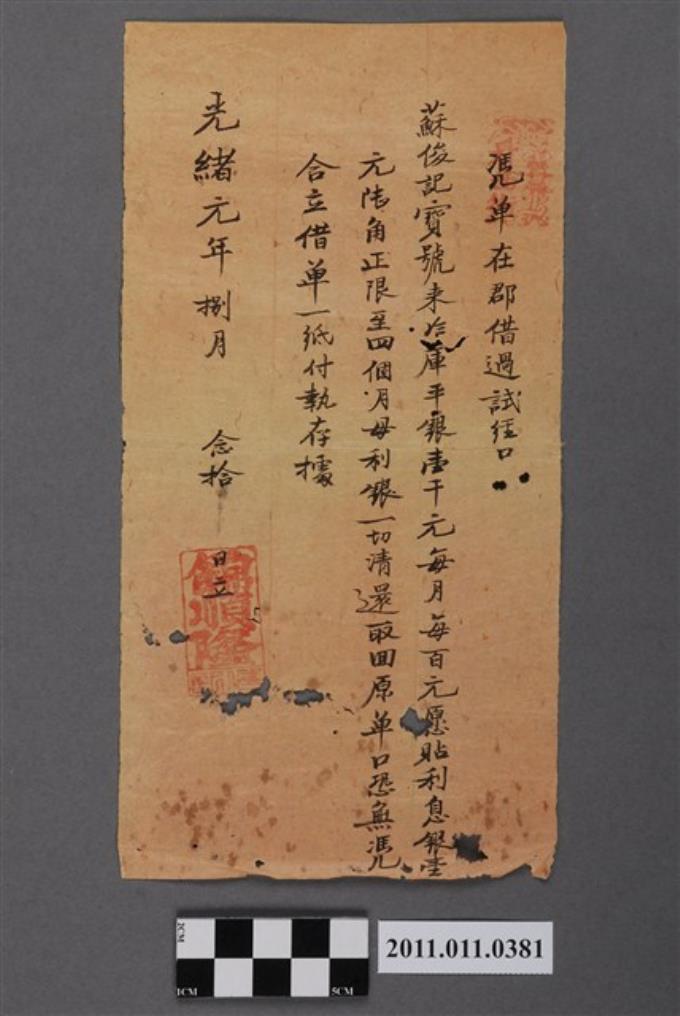 憑單在郡借過試經口
蘇俊記寶號来冷庫平銀壹千元每月每百元愿貼利息銀壹
元陆角正限至四個月母利銀一切清還取回原單口恐無憑
合立借單一紙付執存㨿
光緒元年捌月 念拾 日立
錦順隆
2CM
1CM
5CM
2011.011.0381